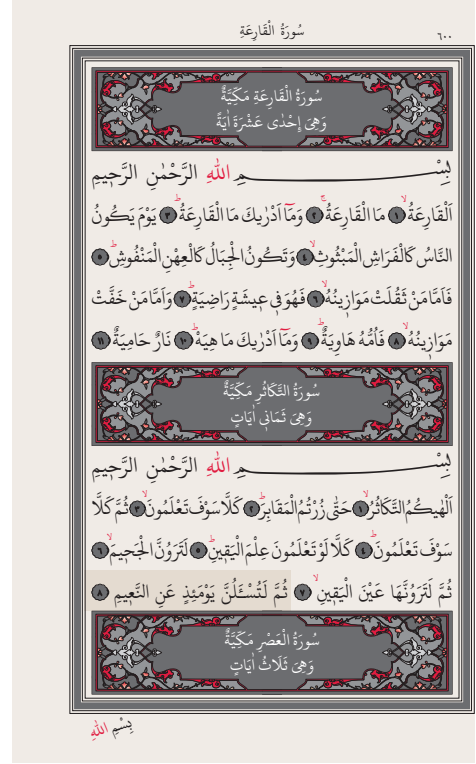 سُورَةُ الْقَارِعَةِ
٦٠٠
سُورَةُ الْقَارِعَةِ مَكِّيَّةٌ
وَهِيَ إِحْدٰى عَشْرَةَ اٰيَةً
بِسْمِ اللّٰهِ الرَّحْمٰنِ الرَّحِيمِ
اَلْقَارِعَةُۙ ١ مَا الْقَارِعَةُۚ ٢ وَمَٓا اَدْرٰيكَ مَا الْقَارِعَةُۜ ٣ يَوْمَ يَكُونُ
النَّاسُ كَالْفَرَاشِ الْمَبْثُوثِۙ ٤ وَتَكُونُ الْجِبَالُ كَالْعِهْنِ الْمَنْفُوشِۜ ٥
فَاَمَّا مَنْ ثَقُلَتْ مَوَازٖينُهُۙ ٦ فَهُوَ فٖي عٖيشَةٍ رَاضِيَةٍۜ ٧ وَاَمَّا مَنْ خَفَّتْ
مَوَازٖينُهُۙ ٨ فَاُمُّهُ هَاوِيَةٌۜ ٩ وَمَٓا اَدْرٰيكَ مَا هِيَهْۜ ١٠ نَارٌ حَامِيَةٌ ١١
سُورَةُ التَّكَاثُرِ مَكِّيَّةٌ
وَهِيَ ثَمَانٖي اٰيَاتٍ
بِسْمِ اللّٰهِ الرَّحْمٰنِ الرَّحِيمِ
اَلْهٰيكُمُ التَّكَاثُرُۙ ١ حَتّٰى زُرْتُمُ الْمَقَابِرَۜ ٢ كَلَّا سَوْفَ تَعْلَمُونَۙ ٣ ثُمَّ كَلَّا
سَوْفَ تَعْلَمُونَۜ ٤ كَلَّا لَوْ تَعْلَمُونَ عِلْمَ الْيَقٖينِۜ ٥ لَتَرَوُنَّ الْجَحٖيمَۙ ٦
ثُمَّ لَتَرَوُنَّهَا عَيْنَ الْيَقٖينِۙ ٧ ثُمَّ لَتُسْـَٔلُنَّ يَوْمَئِذٍ عَنِ النَّعٖيمِ ٨
سُورَةُ الْعَصْرِ مَكِّيَّةٌ
وَهِيَ ثَلَاثُ اٰيَاتٍ
بِسْمِ اللّٰهِ